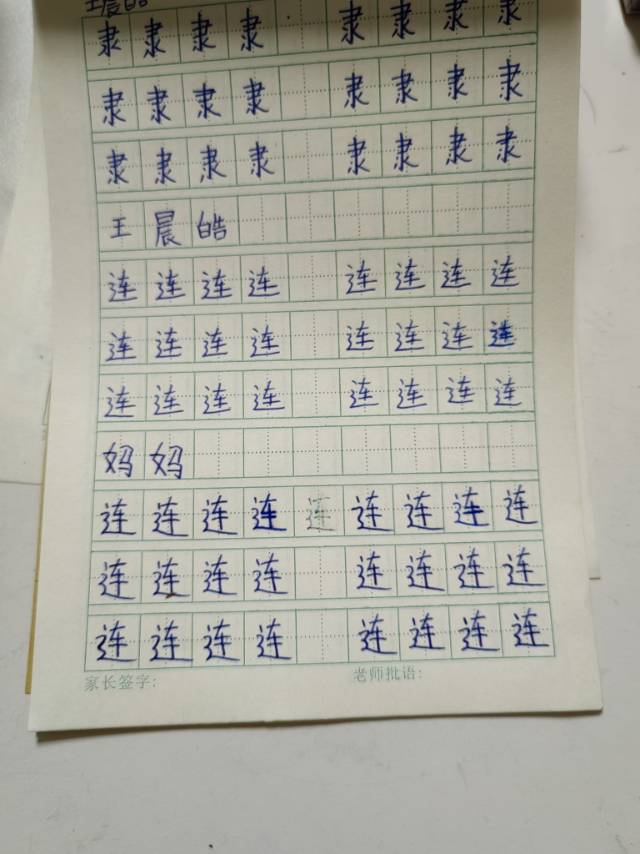 王晨皓
隶隶隶隶 隶隶隶隶
隶隶隶隶 隶隶隶隶
隶隶隶隶 隶隶隶隶
王晨皓
连连连连 连连连连
连连连连 连连连连
连连连连 连连连连
妈妈
连连连连连连连连连
连连连连 连连连连
连连连连 连连连连
家长签字: 老师批语: